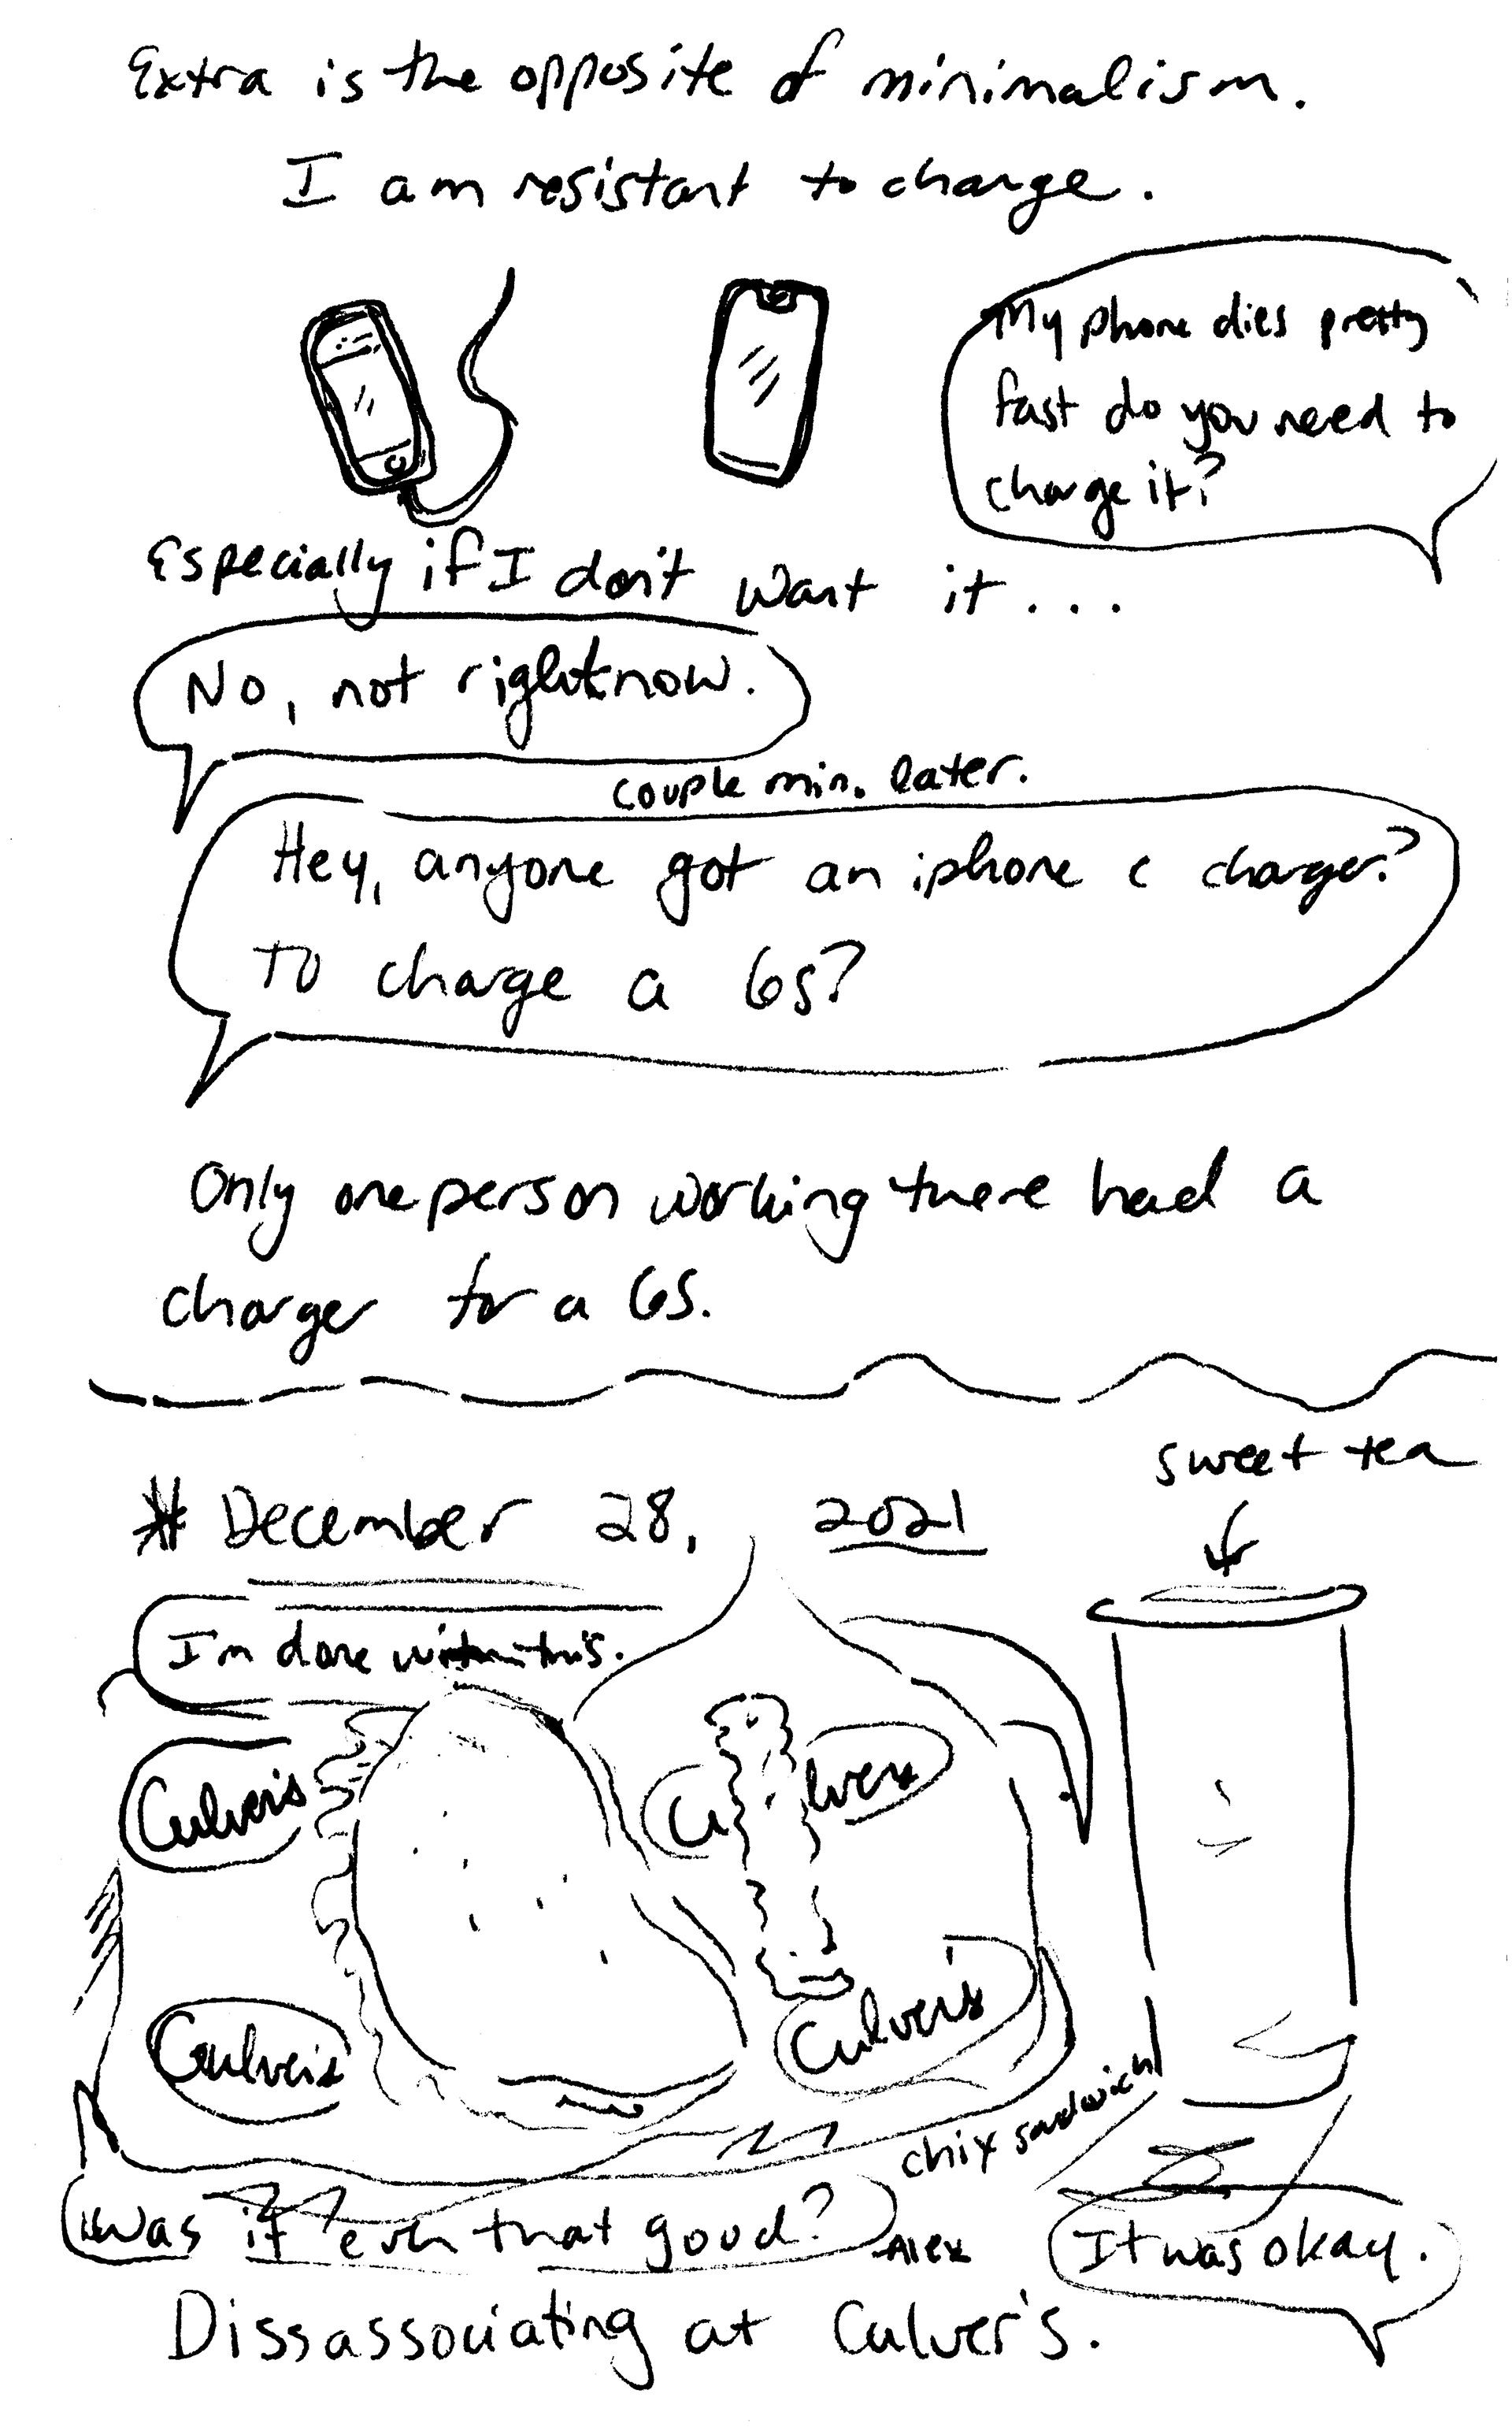 Extra is the opposite of minimalism.
I am resistant to charge.
My phone dies pretty
fast do you need to
charge it?
Especially if I don't want it...
No, not right now.
couple min. later.
Hey, anyone got an iphone c charger?
TO charge a 6s?
Only one person working there had a
charger for a 6S.
sweet tea
* December 28, 2021
I'm done with this.
Culver's
Culvers
Culver's
Culver's
chix sandwich
Was it even that good?
Alex
It was okay.
Dissassociating at Culver's.